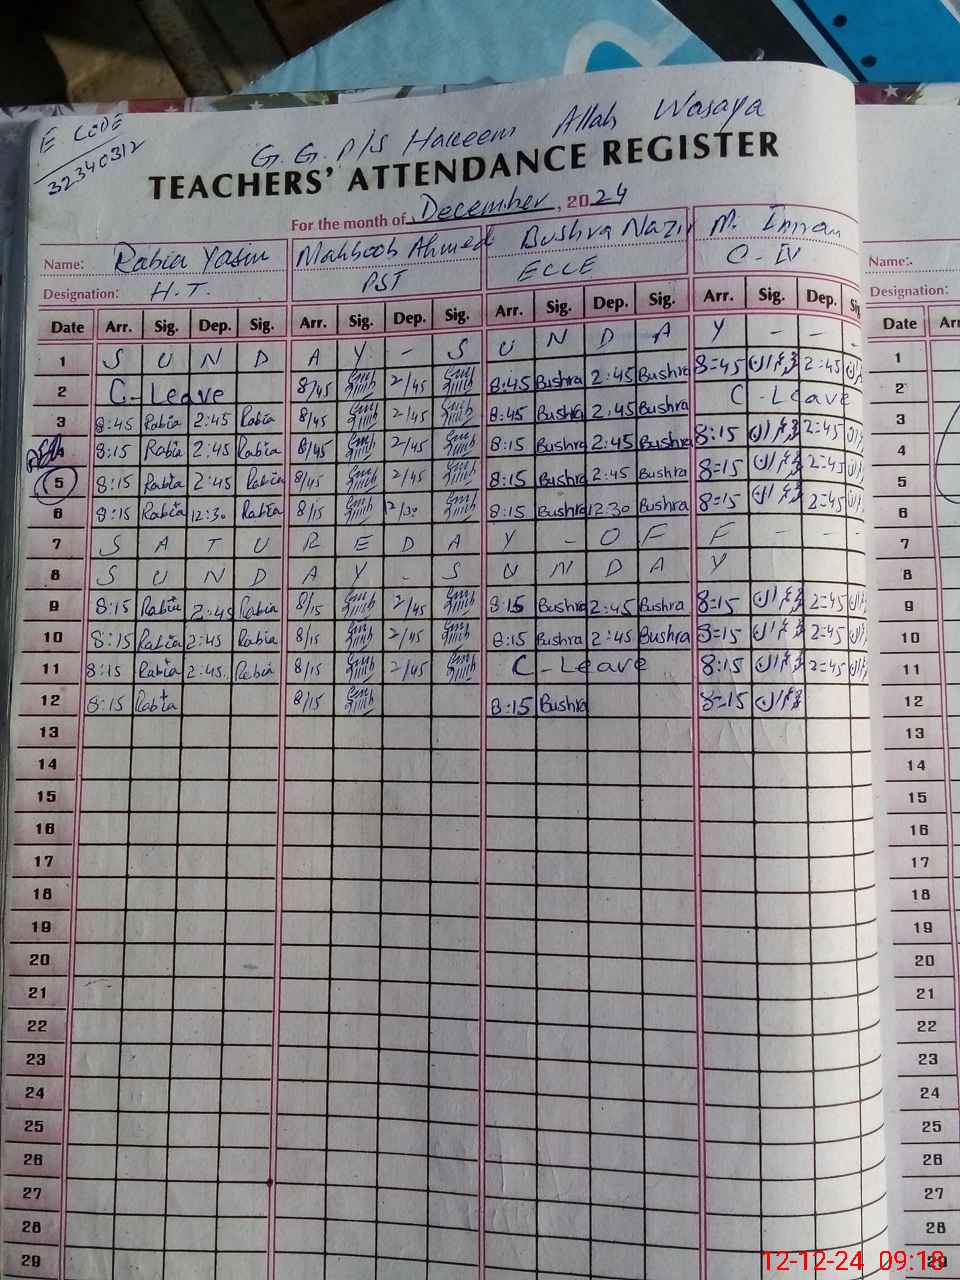 E CODE
32340312
G.G.P/S Hakeem Allah Wasaya
TEACHERS' ATTENDANCE REGISTER
For the month of December, 2024
Name: Rabia Yasin Mahboob Ahmed Bushra Nazir M. Imran Name:.
Designation: H.T. PST ECCE C-IV Designation:
Date Arr. Sig. Dep. Sig. Arr. Sig. Dep. Sig. Arr. Sig. Dep. Sig. Arr. Sig. Dep. Sig Date Arr
1 S U N D A Y - S U N D A Y - - - 1
2 C-Leave 8/45 2/45 8:45 Bushra 2:45 Bushra 8=45 عمران 2:45 2
3 8:45 Rabia 2:45 Rabia 8/45 2/45 8:45 Bushra 2:45 Bushra C-Leave 3
4 8:15 Rabia 2:45 Rabia 8/45 2/45 8:15 Bushra 2:45 Bushra 8:15 عمران 2=45 4
5 8:15 Rabia 2:45 Rabia 8/45 2/45 8:15 Bushra 2:45 Bushra 8=15 عمران 2=45 5
6 8:15 Rabia 12:30 Rabia 8/15 12/30 8:15 Bushra 12:30 Bushra 8=15 عمران 2=45 6
7 S A T U R E D A Y - O F F - - - 7
8 S U N D A Y - S U N D A Y 8
9 8:15 Rabia 2:45 Rabia 8/15 2/45 8:15 Bushra 2:45 Bushra 8=15 عمران 2=45 9
10 8:15 Rabia 2:45 Rabia 8/15 2/45 8:15 Bushra 2:45 Bushra 8=15 عمران 2=45 10
11 8:15 Rabia 2:45 Rabia 8/15 2/45 C-Leave 8:15 عمران 2=45 11
12 8:15 Rabia 8/15 8:15 Bushra 8=15 عمران 12
13 13
14 14
15 15
16 16
17 17
18 18
19 19
20 20
21 21
22 22
23 23
24 24
25 25
26 26
27 27
28 28
29 29
12-12-24 09:18